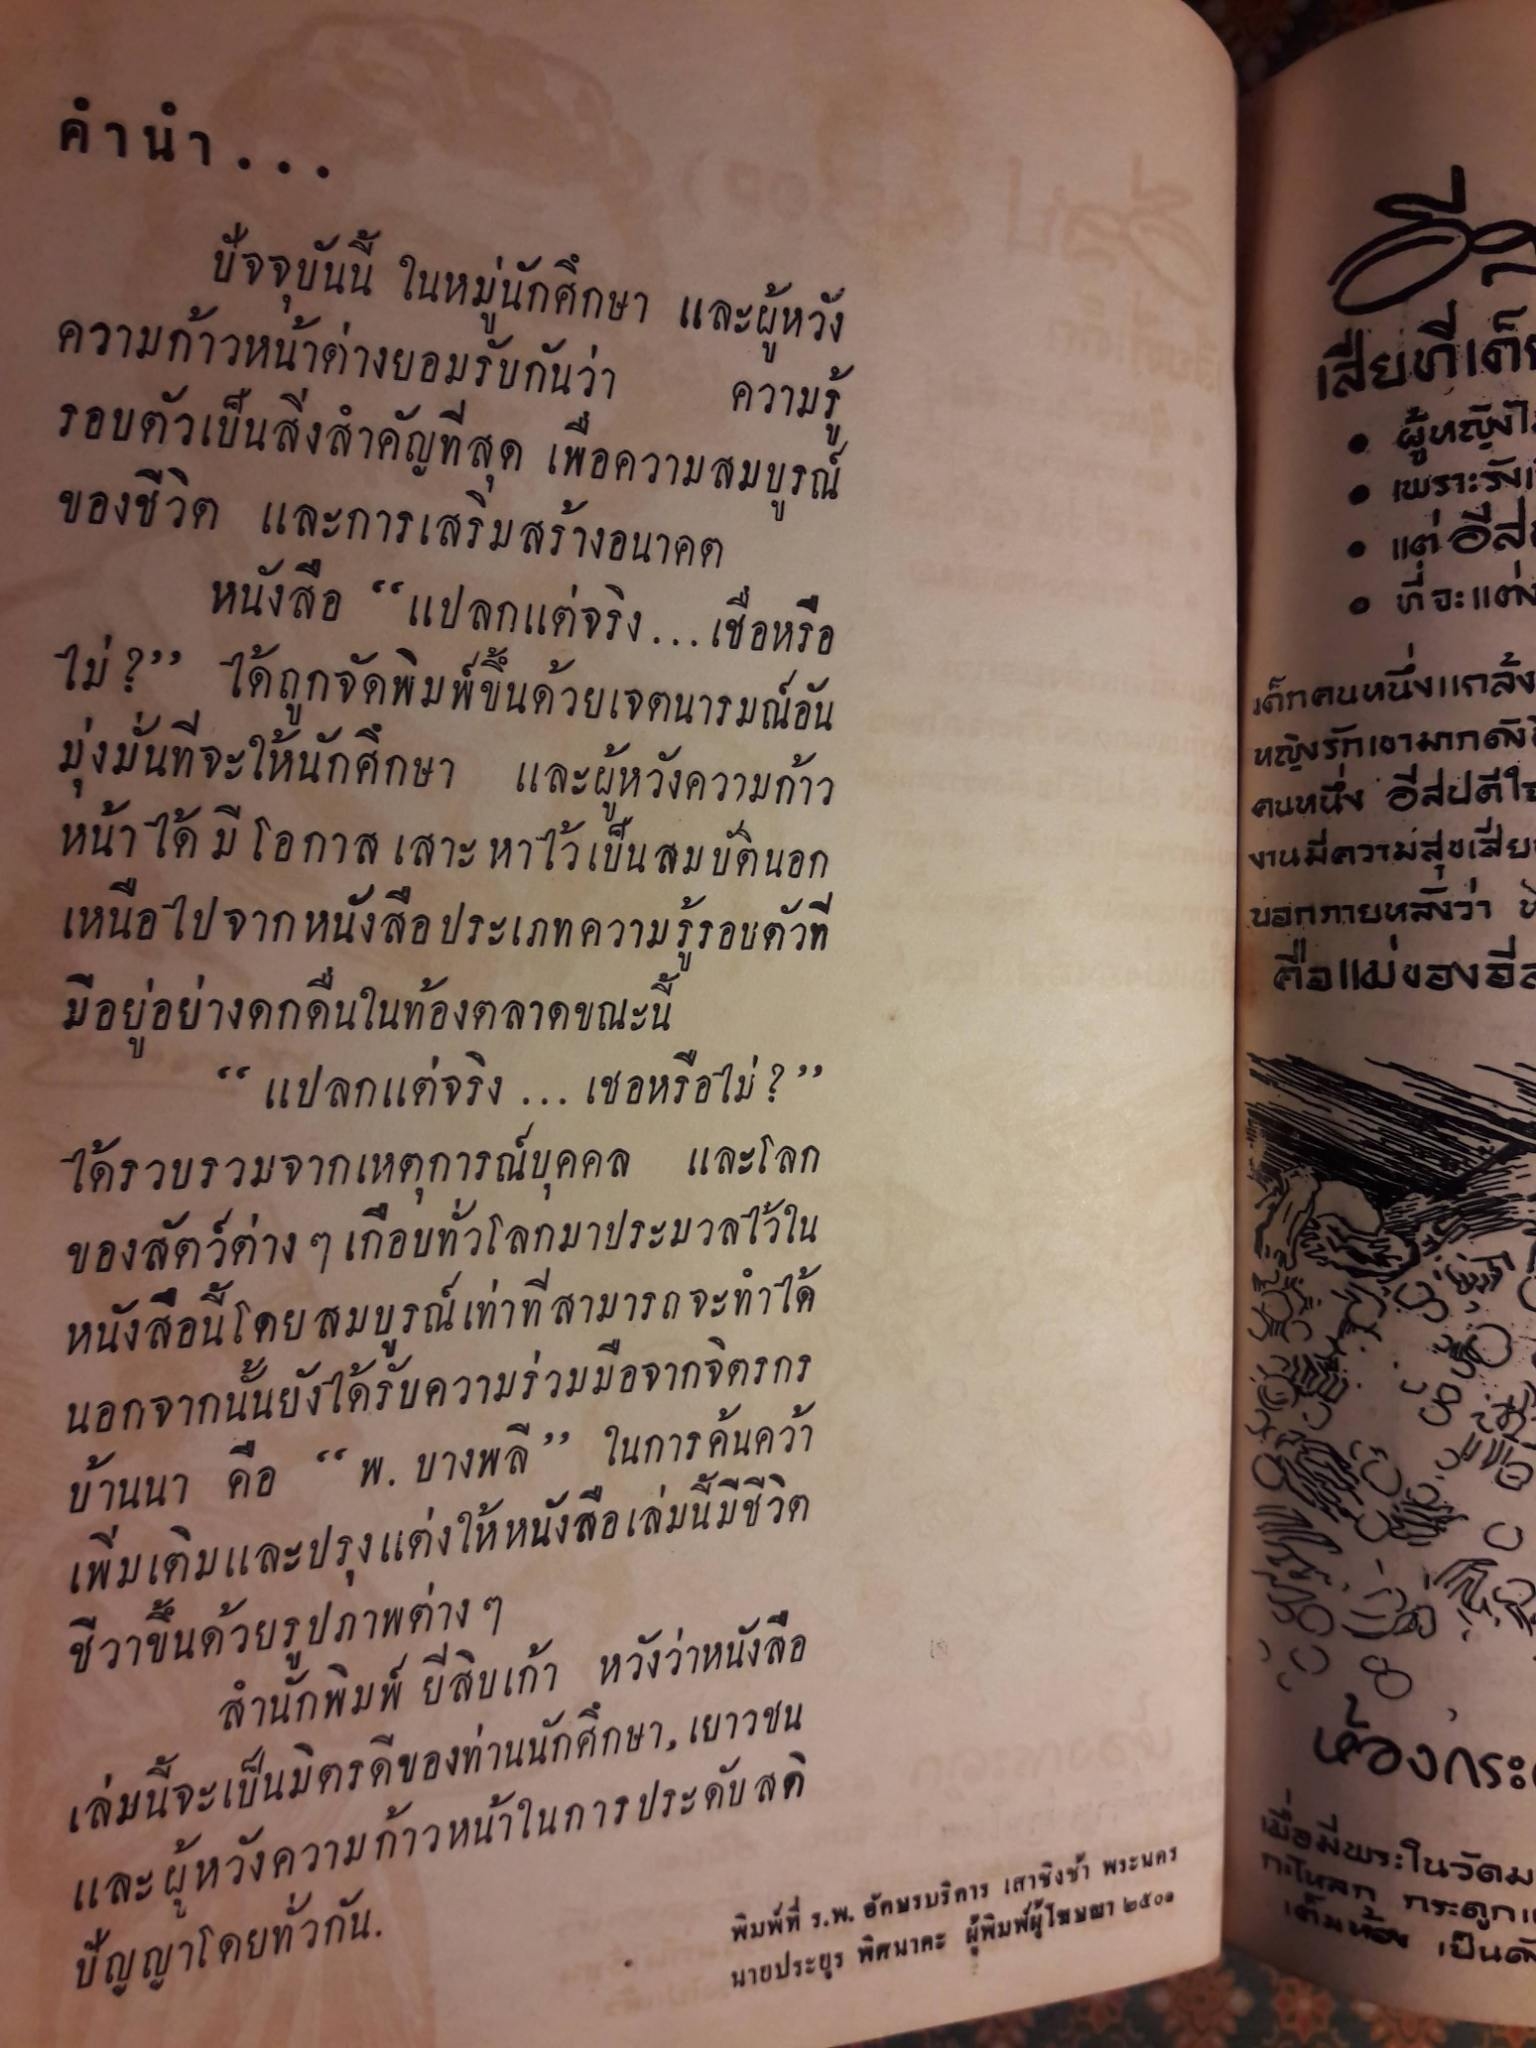 คำนำ...
ปัจจุบันนี้ ในหมู่นักศึกษา และผู้หวัง
ความก้าวหน้าต่างยอมรับกันว่า ความรู้
รอบตัวเป็นสิ่งสำคัญที่สุด เพื่อความสมบูรณ์
ของชีวิต และการเสริมสร้างอนาคต
หนังสือ “แปลกแต่จริง...เชื่อหรือ
ไม่?” ได้ถูกจัดพิมพ์ขึ้นด้วยเจตนารมณ์อัน
มุ่งมั่นที่จะให้นักศึกษา และผู้หวังความก้าว
หน้าได้มีโอกาสเสาะหาไว้เป็นสมบัตินอก
เหนือไปจากหนังสือประเภทความรู้รอบตัวที่
มีอยู่อย่างดกดื่นในท้องตลาดขณะนี้
“แปลกแต่จริง...เชื่อหรือไม่?”
ได้รวบรวมจากเหตุการณ์บุคคล และโลก
ของสัตว์ต่างๆเกือบทั่วโลกมาประมวลไว้ใน
หนังสือนี้โดยสมบูรณ์เท่าที่สามารถจะทำได้
นอกจากนั้นยังได้รับความร่วมมือจากจิตรกร
บ้านนา คือ “พ. บางพลี” ในการค้นคว้า
เพิ่มเติมและปรุงแต่งให้หนังสือเล่มนี้มีชีวิต
ชีวาขึ้นด้วยรูปภาพต่างๆ
สำนักพิมพ์ ยี่สิบเก้า หวังว่าหนังสือ
เล่มนี้จะเป็นมิตรดีของท่านนักศึกษา,เยาวชน
และผู้หวังความก้าวหน้าในการประดับสติ
ปัญญาโดยทั่วกัน.
พิมพ์ที่ ร.พ. อักษรบริการ เสาชิงช้า พระนคร
นายประยูร พิศนาคะ ผู้พิมพ์ผู้โฆษณา ๒๕๐๑
เสียทีเด็
ผู้หญิง
เพราะรัง
แต่ อีส
ที่จะแต่ง
เด็กคนหนึ่งแกล้ง
หญิงรักเขามากดัง
คนหนึ่ง อีสปดีใ
งานมีความสุขเสีย
บอกภายหลังว่า
คือแม่ของอีส
ห้องกระ
เมื่อมีพระในวัดม
กะโหลก กระดูก
เต็มห้อง เป็นดั